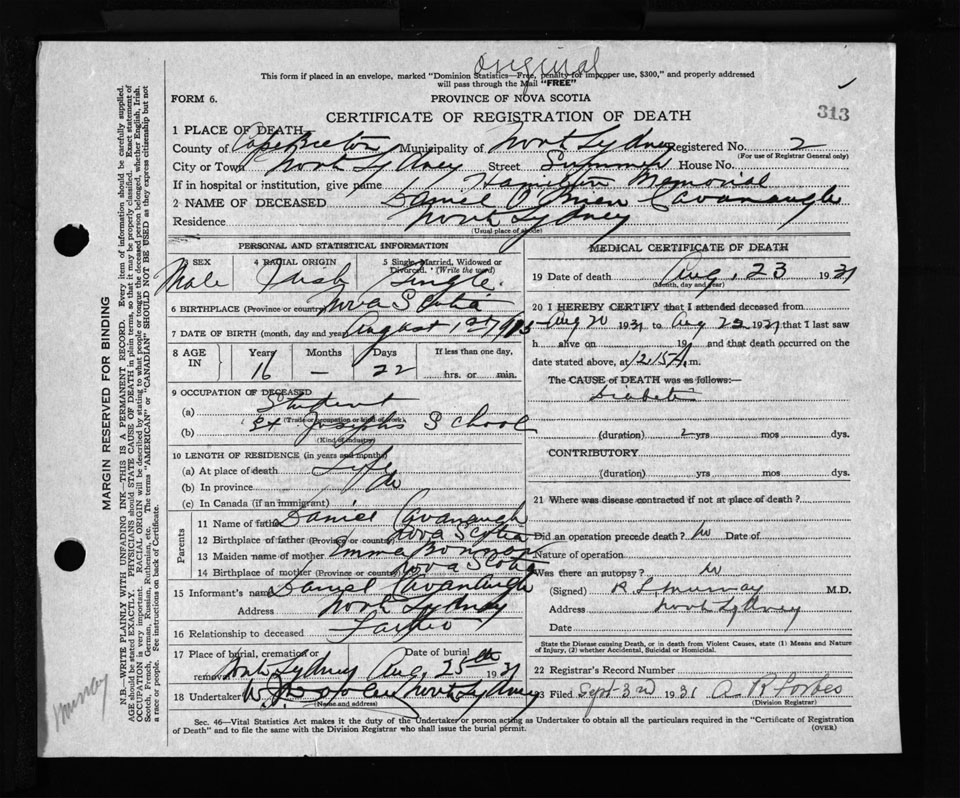 Original
This form if placed in an envelope, marked "Dominion Statistics—Free, penalty for improper use, $300," and properly addressed
will pass through the Mail "FREE"
FORM 6.
PROVINCE OF NOVA SCOTIA
313
CERTIFICATE OF REGISTRATION OF DEATH
1 PLACE OF DEATH
County of Cape Breton Municipality of North Sydney Registered No. 2
(For use of Registrar General only)
City or Town North Sydney Street Summer House No.
If in hospital or institution, give name Hamilton Memorial
2 NAME OF DECEASED Daniel O'Brien Cavanaugh
Residence North Sydney
(Usual place of abode)
PERSONAL AND STATISTICAL INFORMATION
3 SEX Male
4 RACIAL ORIGIN Irish
5 Single, Married, Widowed or Divorced. (Write the word) Single.
6 BIRTHPLACE (Province or country) Nova Scotia
7 DATE OF BIRTH (month, day and year) August 1st 1915
8 AGE IN Years 16 Months — Days 22 If less than one day, hrs. or min.
9 OCCUPATION OF DECEASED
(a) Student
(Trade or occupation or kind of work)
(b) St Josephs School
(Kind of industry)
10 LENGTH OF RESIDENCE (in years and months)
(a) At place of death Life
(b) In province do
(c) In Canada (if an immigrant)
Parents
11 Name of father Daniel Cavanaugh
12 Birthplace of father (Province or country) Nova Scotia
13 Maiden name of mother Emma
14 Birthplace of mother (Province or country) Nova Scotia
15 Informant's name Daniel Cavanaugh
Address North Sydney
16 Relationship to deceased Father
17 Place of burial, cremation or removal North Sydney Date of burial Aug, 25th 1931
18 Undertaker North Sydney
(Name and address)
MEDICAL CERTIFICATE OF DEATH
19 Date of death Aug, 23 1931
(Month, day and year)
20 I HEREBY CERTIFY that I attended deceased from
Aug 20 1931 to Aug 22 1931 that I last saw
h alive on 19 and that death occurred on the
date stated above, at 12.15 A.m.
The CAUSE of DEATH was as follows:
Diabetes
(duration) 2 yrs mos dys.
CONTRIBUTORY
(duration) yrs mos dys.
21 Where was disease contracted if not at place of death?
Did an operation precede death? no Date of
Nature of operation
Was there an autopsy? no
(Signed) R L Murray M.D.
Address North Sydney
Date
State the Disease causing Death, or in death from Violent Causes, state (1) Means and Nature
of Injury, (2) whether Accidental, Suicidal or Homicidal.
22 Registrar's Record Number
23 Filed Sept 3rd 1931 A R Forbes
(Division Registrar)
Sec. 46—Vital Statistics Act makes it the duty of the Undertaker or person acting as Undertaker to obtain all the particulars required in the "Certificate of Registration
of Death" and to file the same with the Division Registrar who shall issue the burial permit.
(OVER)
MARGIN RESERVED FOR BINDING
N.B.—WRITE PLAINLY WITH UNFADING INK—THIS IS A PERMANENT RECORD. Every item of information should be carefully supplied.
AGE should be stated EXACTLY. PHYSICIANS should STATE CAUSE OF DEATH in plain terms, so that it may be properly classified. Exact statement of
OCCUPATION is very important. RACIAL ORIGIN will be described by stating to what people or tongue the deceased person belonged, whether English, Irish,
Scotch, French, German, Russian, Ruthenian, etc. The terms "AMERICAN" or "CANADIAN" SHOULD NOT BE USED as they express citizenship but not
a race or people. See instructions on back of Certificate.
Murray